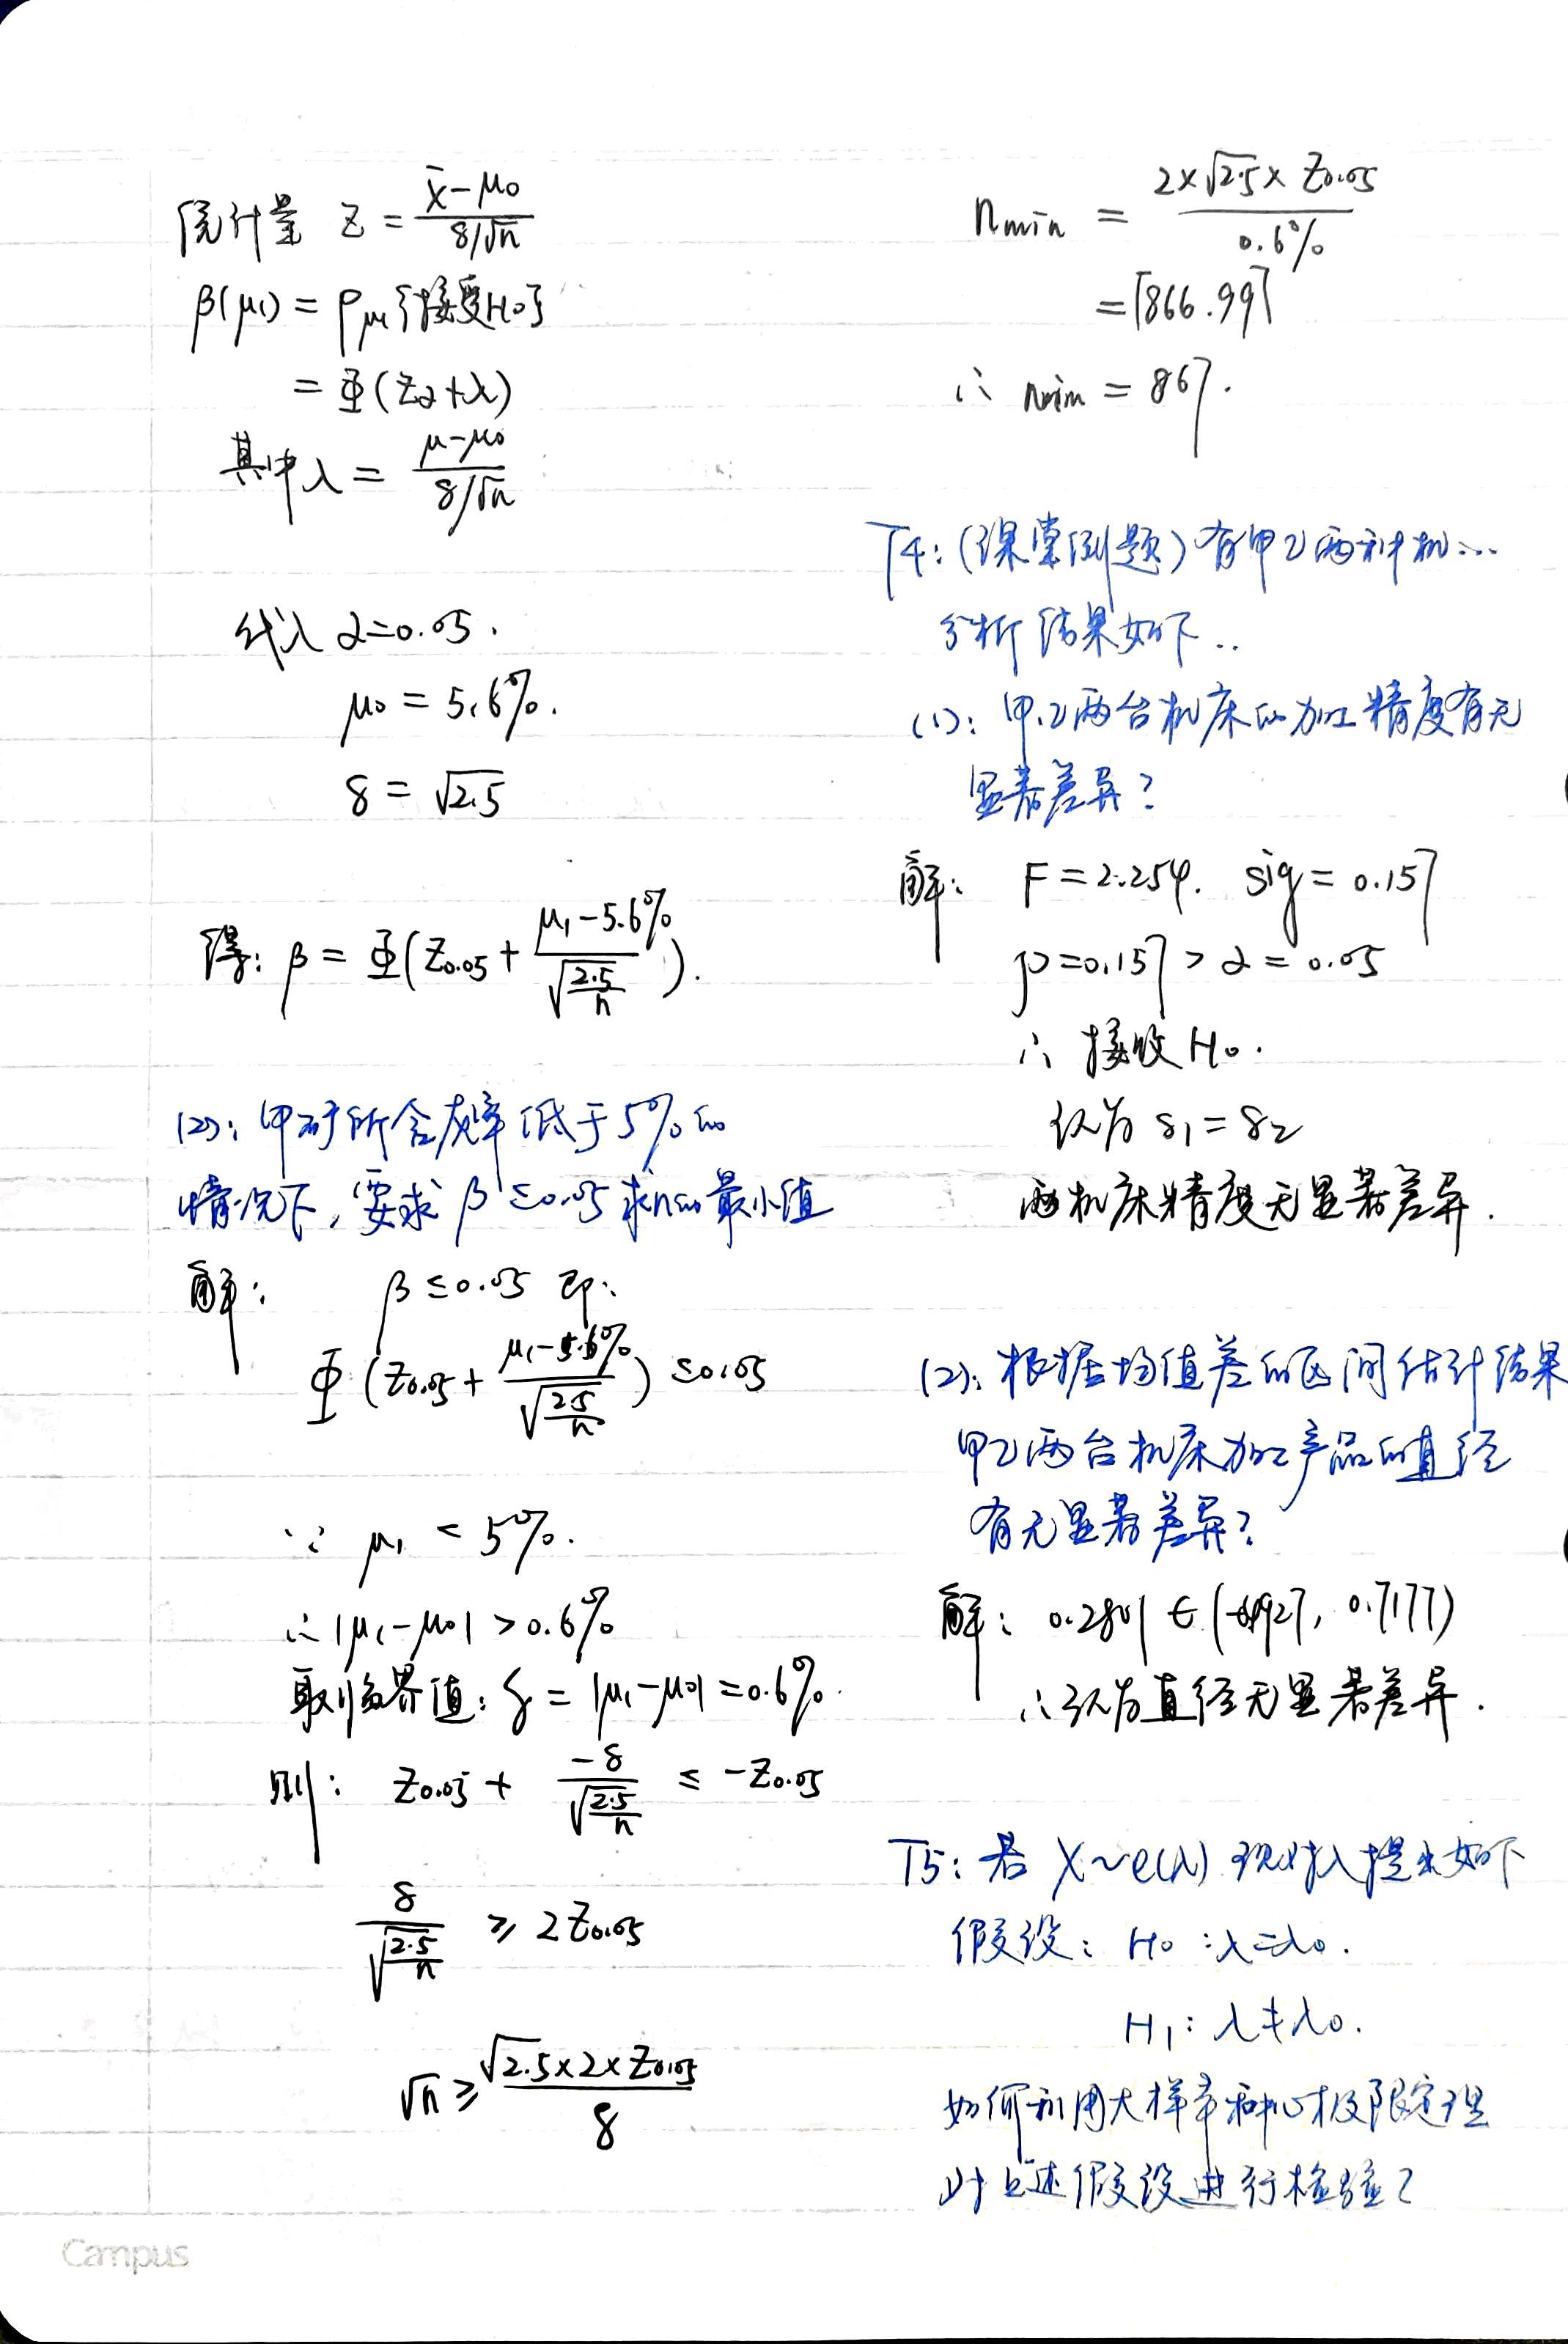 统计量 Z = (x̄-μ0)/(δ/√n)
β(μ1) = Pμ1{接受H0}
= Φ(Zα+λ)
其中λ = (μ-μ0)/(δ/√n)
代入 α=0.05.
μ0 = 5.6%.
δ = √2.5
得: β = Φ(Z0.05 + (μ1-5.6%)/√(2.5/n)).
(2): 甲矿所含灰率低于5%的
情况下, 要求 β≤0.05 求n的最小值
解: β≤0.05 即:
Φ(Z0.05 + (μ1-5.6%)/√(2.5/n)) ≤0.05
∵ μ1 < 5%.
∴ |μ1-μ0| >0.6%
取临界值: δ = |μ1-μ0| =0.6%.
则: Z0.05 + -δ/√(2.5/n) ≤ -Z0.05
δ/√(2.5/n) ≥ 2Z0.05
√n ≥ (√2.5×2×Z0.05)/δ
nmin = (2×√2.5×Z0.05)/0.6%
=⌈866.99⌉
∴ nmin = 867.
T4: (课堂例题) 有甲乙两种机…
分析结果如下..
(1): 甲.乙两台机床的加工精度有无
显著差异?
解: F = 2.254. sig = 0.157
p=0.157 > α = 0.05
∴ 接收 H0.
认为 δ1 = δ2
两机床精度无显著差异.
(2): 根据均值差的区间估计结果
甲乙两台机床加工产品的直径
有无显著差异?
解: 0.2801 ∈ ( , 0.7177)
∴ 认为直径无显著差异.
T5: 若 X~e(λ) 现对λ提出如下
假设: H0 :λ=λ0.
H1: λ≠λ0.
如何利用大样本和中心极限定理
对上述假设进行检验?
Campus